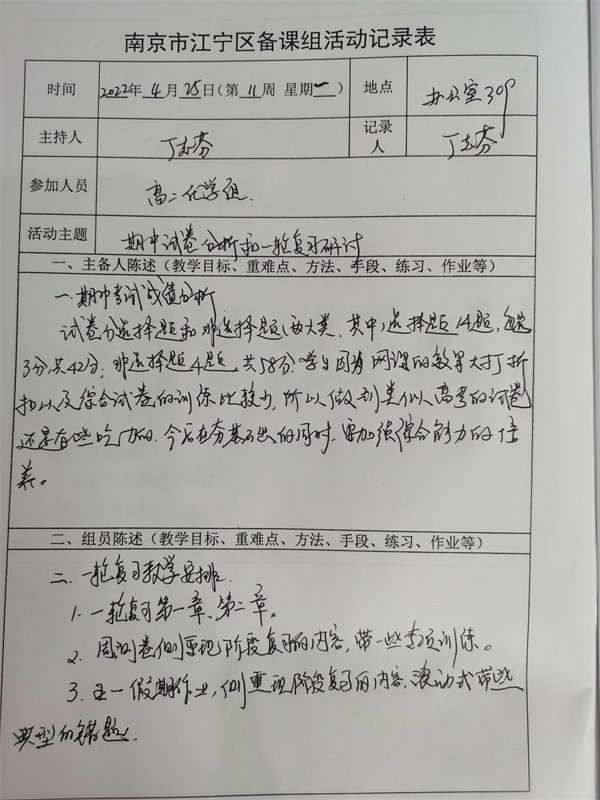 南京市江宁区备课组活动记录表
时间 2022年 4 月 25 日（第 11 周 星期一） 地点 办公室309
主持人 丁志芬 记录人 丁志芬
参加人员 高二化学组.
活动主题 期中试卷分析和一轮复习研讨
一、主备人陈述（教学目标、重难点、方法、手段、练习、作业等）
一.期中考试成绩分析
试卷分选择题和非选择题两大类.其中,选择题14题,每题
3分,共42分;非选择题4题,共58分.学生因为网课的效果大打折
扣以及综合试卷的训练比较少,所以做到类似高考的试卷
还是有些吃力的.今后在夯基础的同时,要加强综合能力的培
养。
二、组员陈述（教学目标、重难点、方法、手段、练习、作业等）
二.一轮复习教学安排.
1.一轮复习第一章、第二章。
2.周测卷侧重现阶段复习的内容,带一些专项训练。
3.五一假期作业,侧重现阶段复习的内容,滚动式带些
典型的错题.